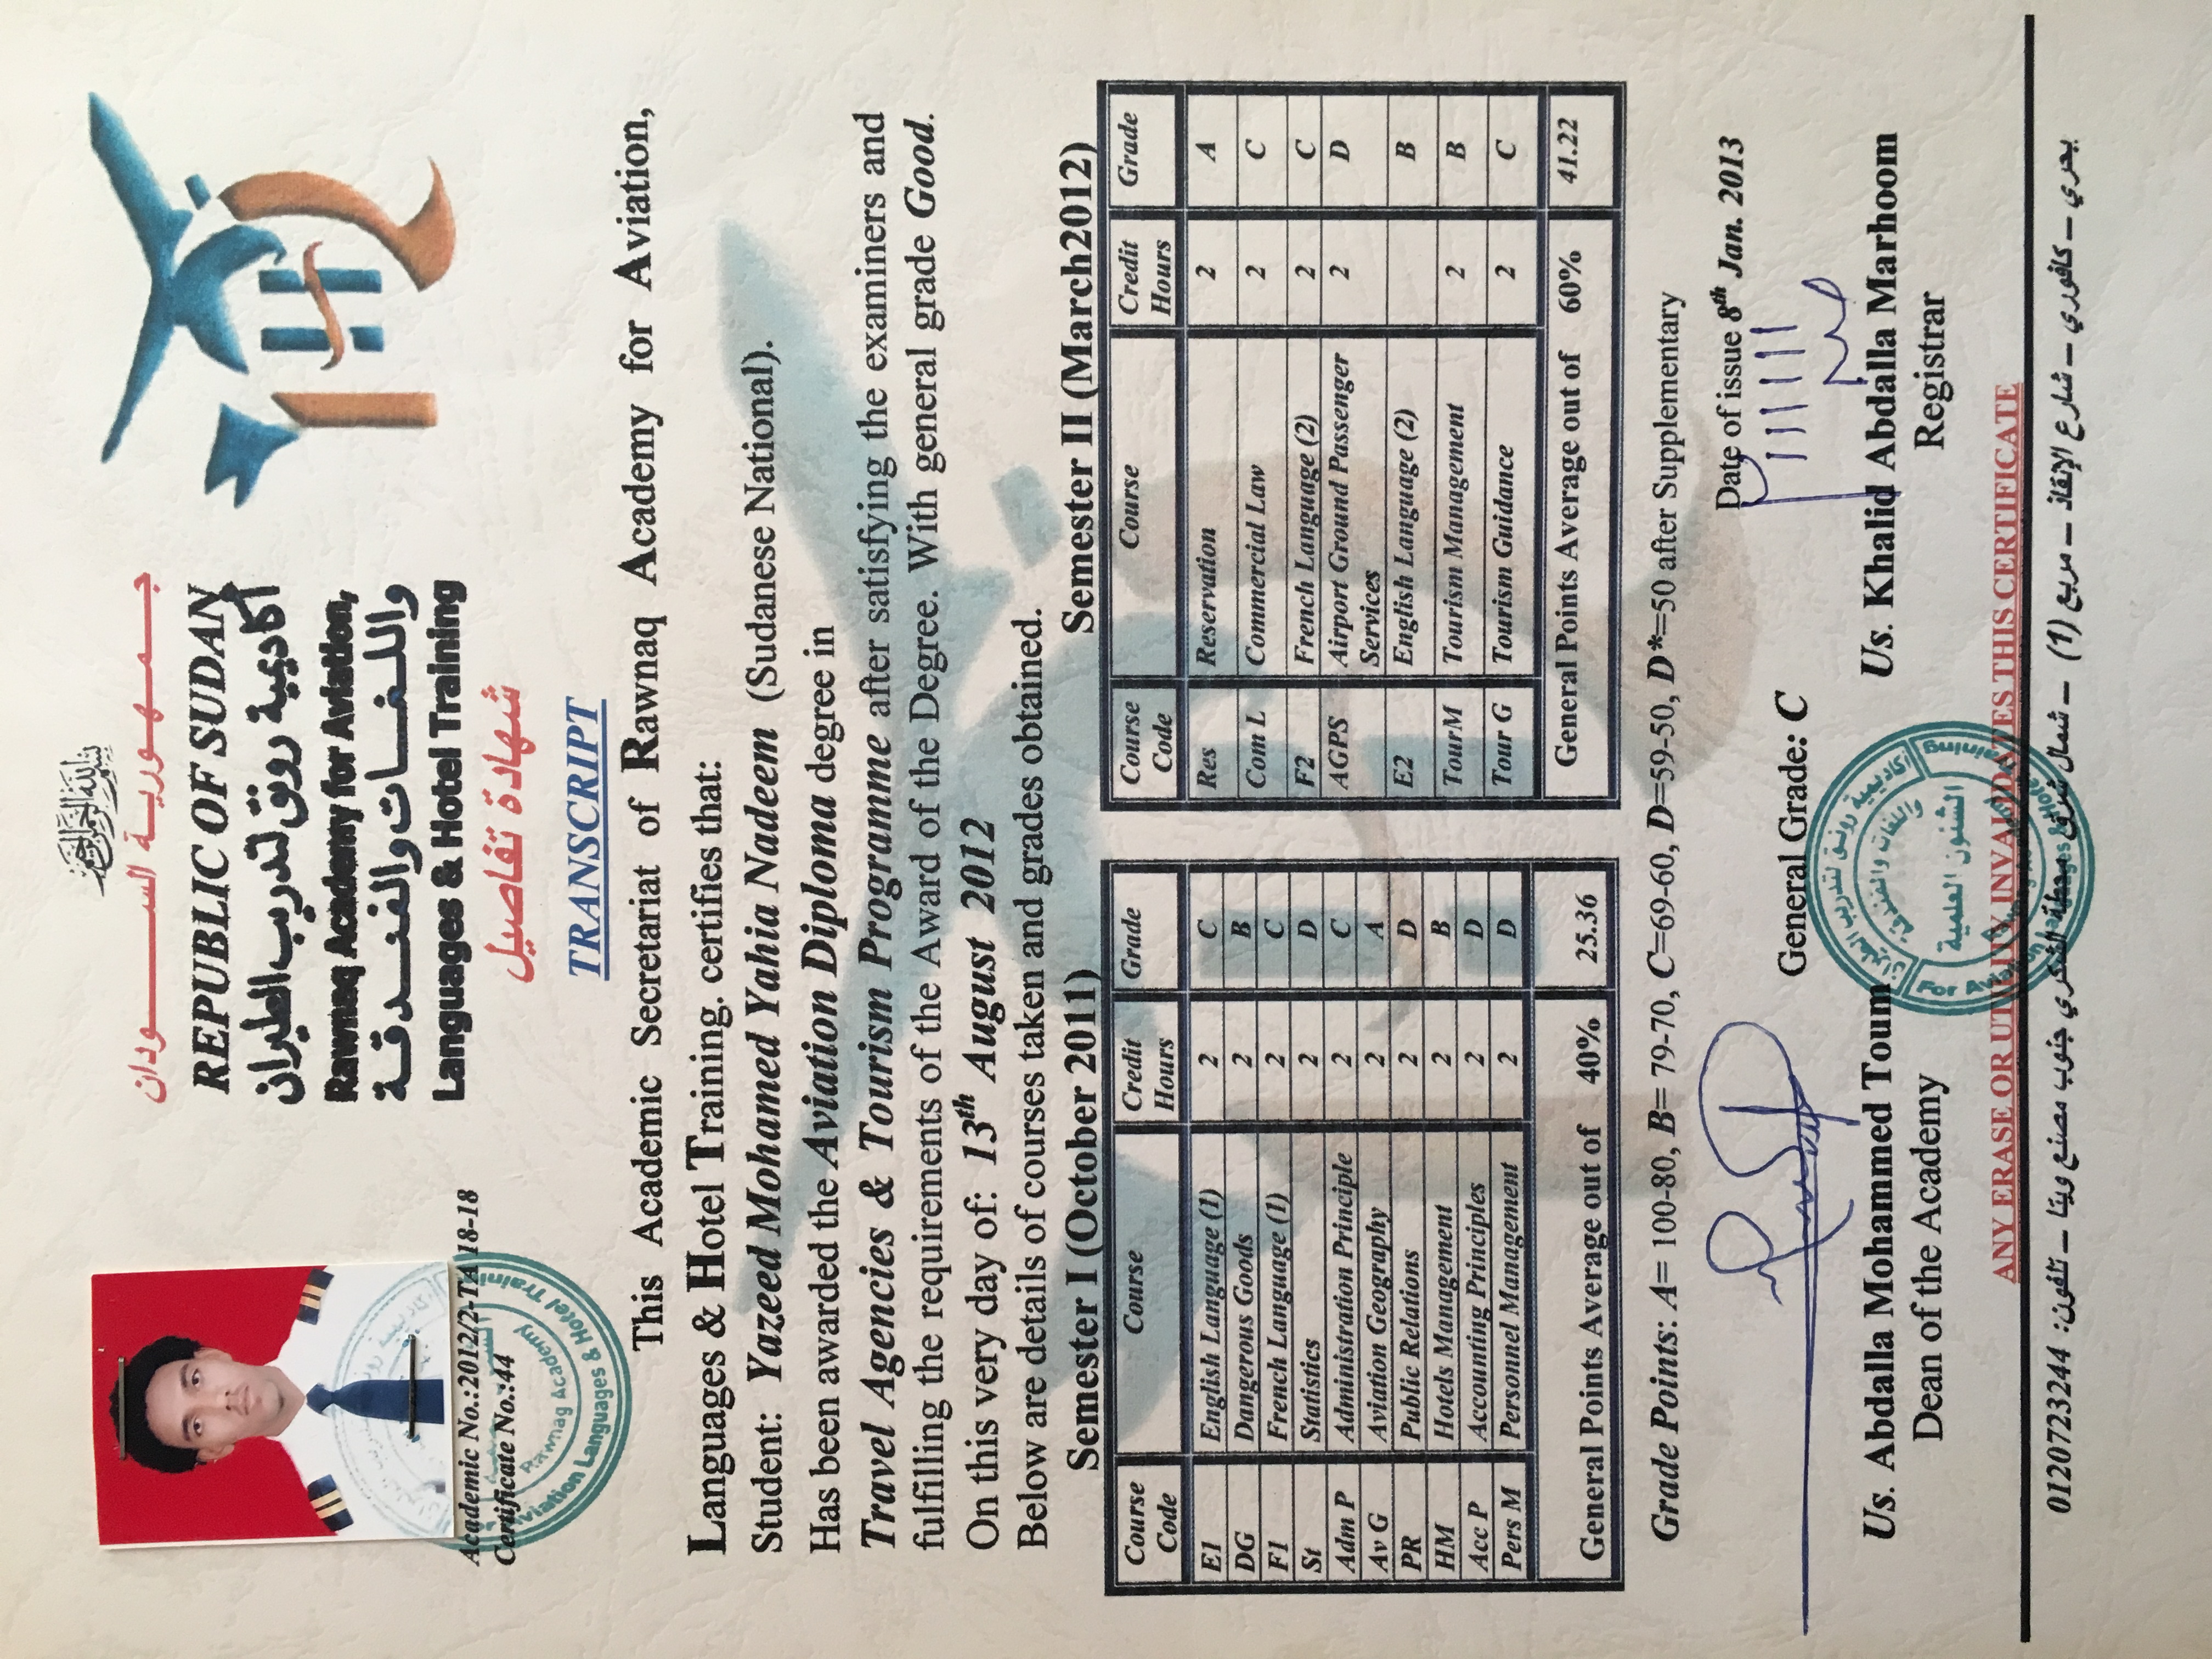 جـمـهـوريـة الســـــودان
REPUBLIC OF SUDAN
أكاديمية رونق لتدريب الطيران
Rawnaq Academy for Aviation,
واللغــات والفنــدقــة
Languages & Hotel Training
شهادة تفاصيل
Academic No.:2012/2-TA18-18
Certificate No.:44
TRANSCRIPT
This Academic Secretariat of Rawnaq Academy for Aviation,
Languages & Hotel Training. certifies that:
Student: Yazeed Mohamed Yahia Nadeem (Sudanese National).
Has been awarded the Aviation Diploma degree in
Travel Agencies & Tourism Programme after satisfying the examiners and
fulfilling the requirements of the Award of the Degree. With general grade Good.
On this very day of: 13th August 2012
Below are details of courses taken and grades obtained.
Semester I (October 2011)
Course Code Course Credit Hours Grade
E1 English Language (1) 2 C
DG Dangerous Goods 2 B
F1 French Language (1) 2 C
St Statistics 2 D
Adm P Administration Principle 2 C
Av G Aviation Geography 2 A
PR Public Relations 2 D
HM Hotels Management 2 B
Acc P Accounting Principles 2 D
Pers M Personnel Management 2 D
General Points Average out of 40% 25.36
Semester II (March2012)
Course Code Course Credit Hours Grade
Res Reservation 2 A
Com L Commercial Law 2 C
F2 French Language (2) 2 C
AGPS Airport Ground Passenger Services 2 D
E2 English Language (2) B
TourM Tourism Management 2 B
Tour G Tourism Guidance 2 C
General Points Average out of 60% 41.22
Grade Points: A= 100-80, B= 79-70, C=69-60, D=59-50, D*=50 after Supplementary
Date of issue 8th Jan. 2013
General Grade: C
Us. Abdalla Mohammed Toum
Dean of the Academy
Us. Khalid Abdalla Marhoom
Registrar
أكاديمية رونق لتدريب الطيران
واللغات والفندقة
الشئون العلمية
Rawnaq Academy
For Aviation Languages & Hotel Training
ANY ERASE OR UTLITY INVALIDATES THIS CERTIFICATE
بحري – كافوري – شارع الإنقاذ – مربع (1) – شمال شرق محطة البكري جنوب مصنع ويتا – تلفون: 0120723244